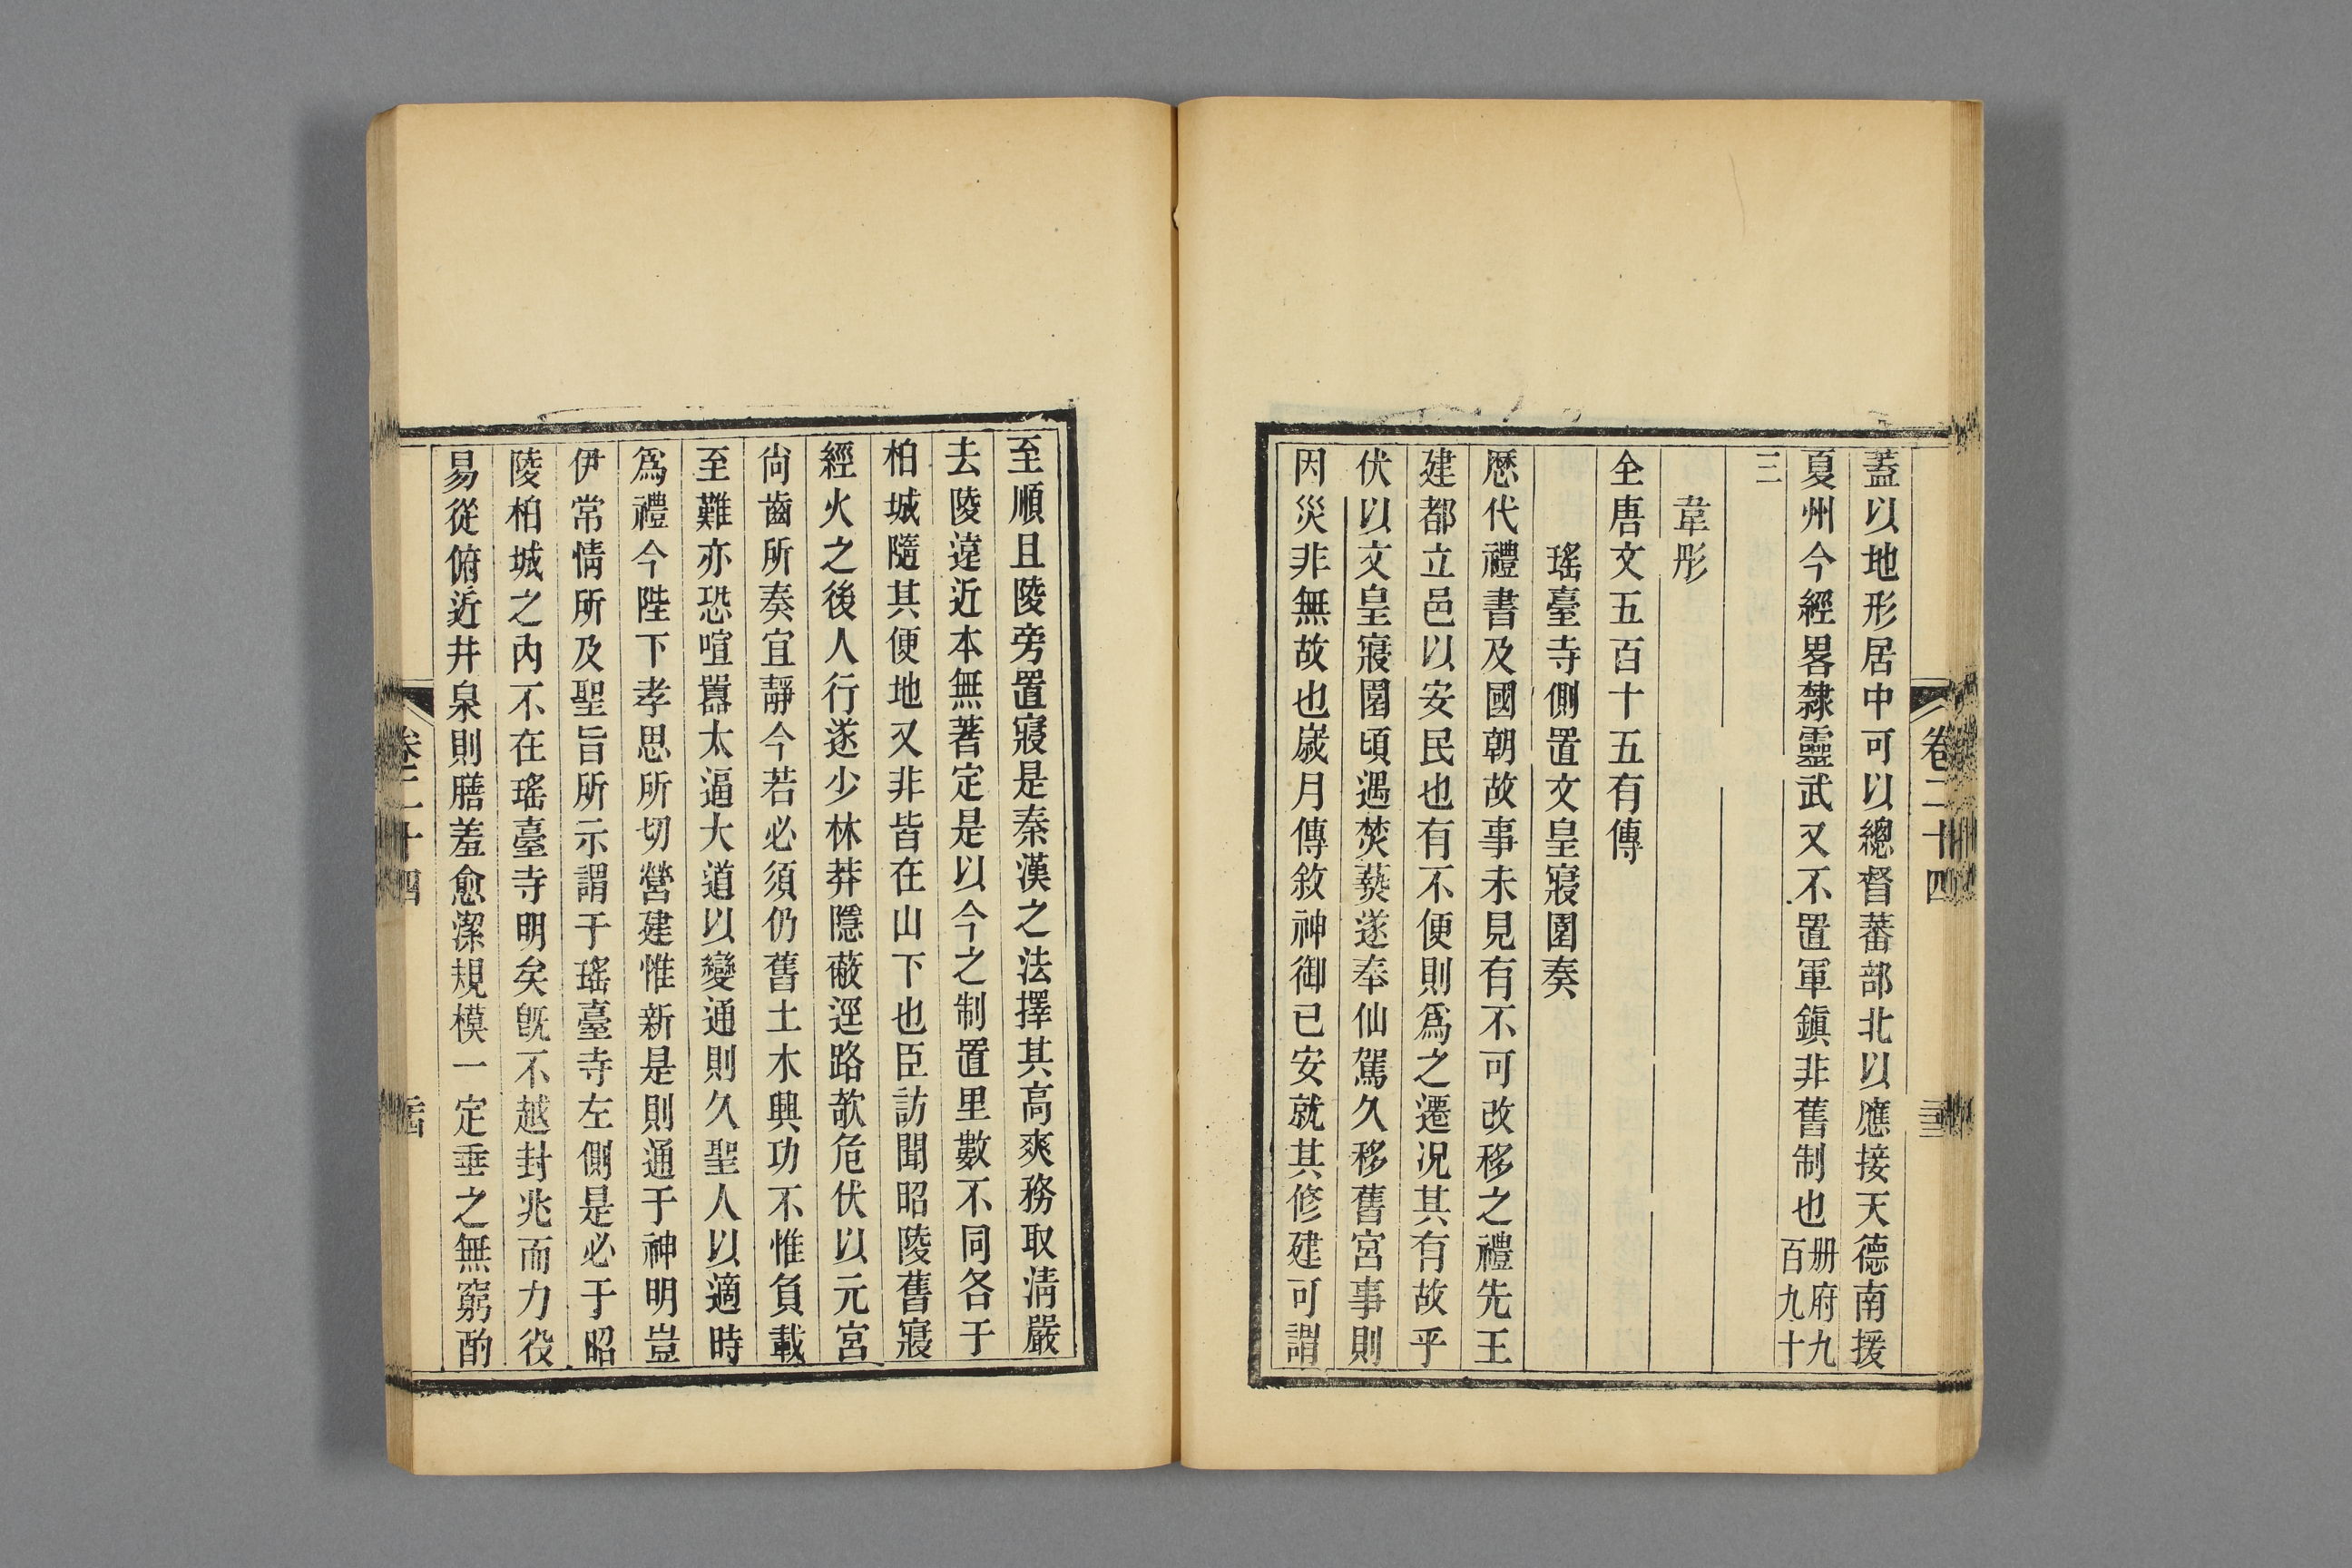 蓋以地形居中可以總督蕃部北以應接天德南援
夏州今經畧隸靈武又不置軍鎭非舊制也册府九百九十
三
韋彤
全唐文五百十五有傳
瑤臺寺側置文皇寢園奏
歷代禮書及國朝故事未見有不可改移之禮先王
建都立邑以安民也有不便則爲之遷况其有故乎
伏以文皇寢園頃遇焚爇遂奉仙駕久移舊宮事則
因災非無故也歲月傳敘神御已安就其修建可謂
至順且陵旁置寢是秦漢之法擇其高爽務取淸嚴
去陵遠近本無著定是以今之制置里數不同各于
柏城隨其便地又非皆在山下也臣訪聞昭陵舊寢
經火之後人行遂少林莽隱蔽逕路欹危伏以元宮
尙齒所奏宜靜今若必須仍舊土木興功不惟負載
至難亦恐喧囂太逼大道以變通則久聖人以適時
爲禮今陛下孝思所切營建惟新是則通于神明豈
伊常情所及聖旨所示謂于瑤臺寺左側是必于昭
陵柏城之內不在瑤臺寺明矣旣不越封兆而力役
易從俯近井泉則膳羞愈潔規模一定垂之無窮酌
卷二十四
卷二十四